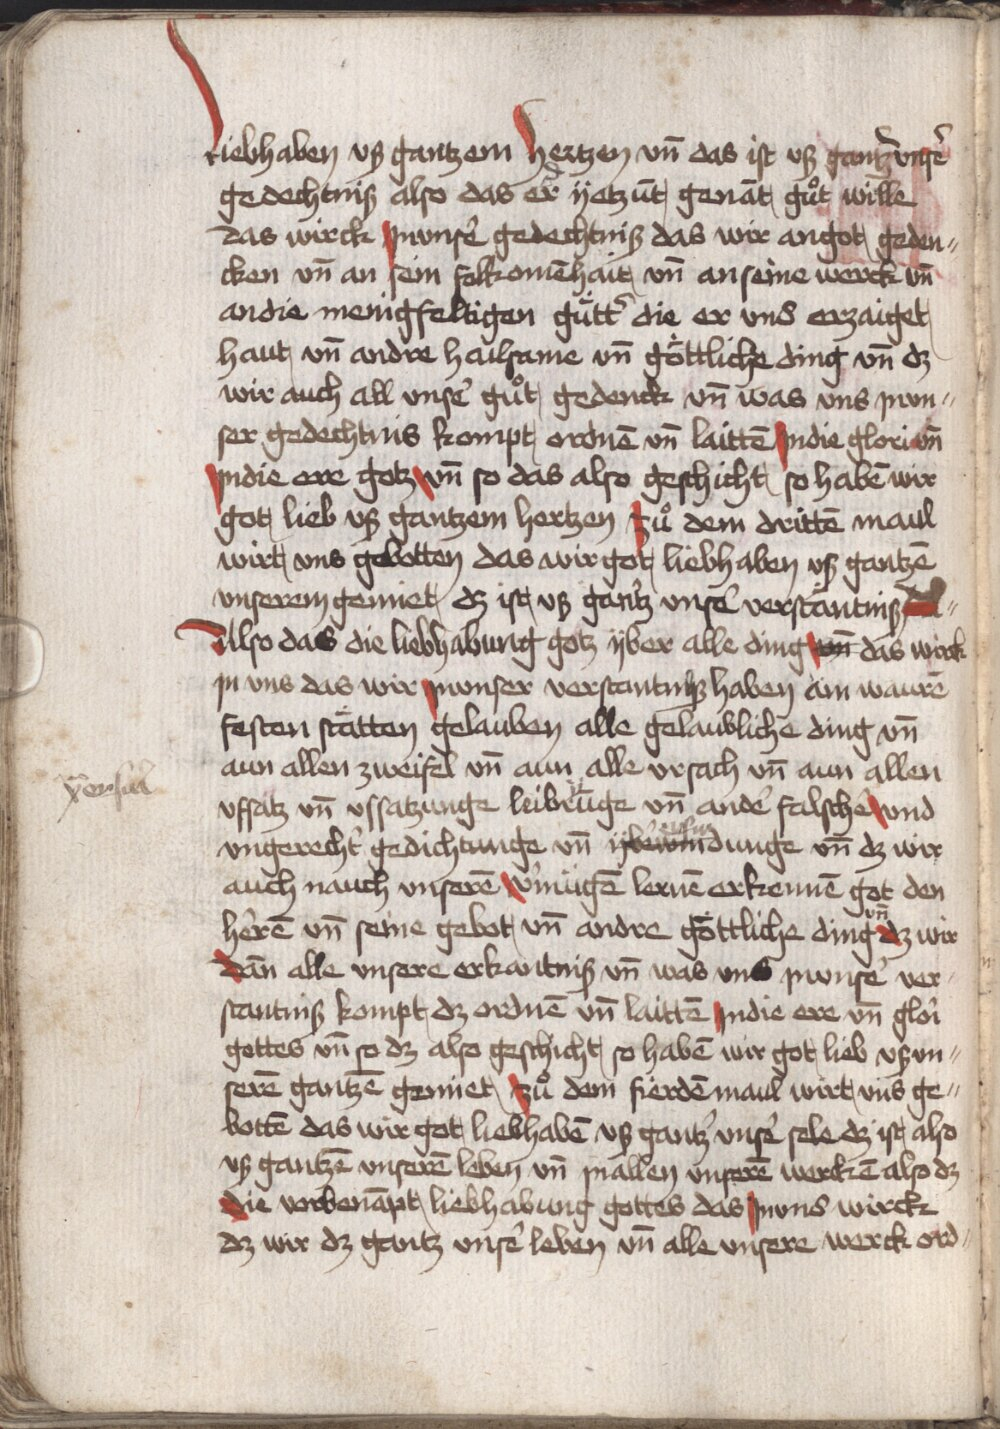 Liebhaben vß gantzem hertzen vn̄ das ist vß gantz͛ vnser͛
gedechtniß also das er yetzūt genāt gůt wille
das wirck inunser͛ gedechtniß das wir angot geden〃
cken vn̄ an sein folkomēhait vn̄ an seine werck vn̄
andie menigfeltigen gütt͛ die er vns erzaiget
haut vn̄ andre hailsame vn̄ göttliche ding vn̄ dz
wir auch all unser͛ gůt gedenck vn̄ was vns inun〃
ser gedechtnis kompt ordnē vn̄ laittē indie glori vn̄
indie ere gotz vn̄ so das also geschicht so habē wir
got lieb vß gantzem hertzen Zů dem drittē maul
wirt vns gebotten das wir got liebhaben vß gantzē
vnserem gemiet dz ist vß gantz͛ vnser͛ verstäntniß
Also das die liebhabung gotz yber alle ding vn̄ das wirck
in vns das wir inunser verstantniß haben ain waurē
festen stätten gelauben alle gelaublichē ding vn̄
aun allen zweifel vn̄ aun alle vrsach vn̄ aun allen
vffsatz vn̄ vffsatzunge leibrüge vn̄ ander͛ falscher͛ vnd
vngerecht͛ gedichtunge vn̄ dz wir
auch nauch vnserē v͛mügē lernē erkennē got den
herrē vn̄ seine gebot vn̄ andre göttliche ding vn̄ dz wir
dān alle vnsere erkantniß vn̄ was vns inunser͛ ver〃
stantniß kompt dz ordnē vn̄ laittē indie ere vn̄ glori
gottes vn̄ so dz also geschicht so habē wir got lieb vß un〃
serē gantzē gemiet zů dem fierdē maul wirt vns ge〃
bottē das wir got liebhabē vß gantz͛ vnser͛ sele dz ist also
vß gantzē vnserē leben vn̄ inallen vnserē werckē also dz
die vorbenāpt liebhabung gottes das inuns wirck
dz wir dz gantz vnser͛ leben vn̄ alle vnsere werck ord〃